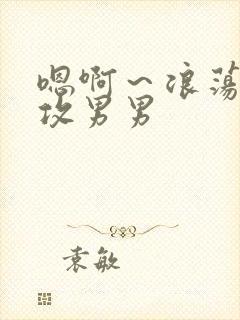 嗯啊～浪荡
攻男男
袁敏